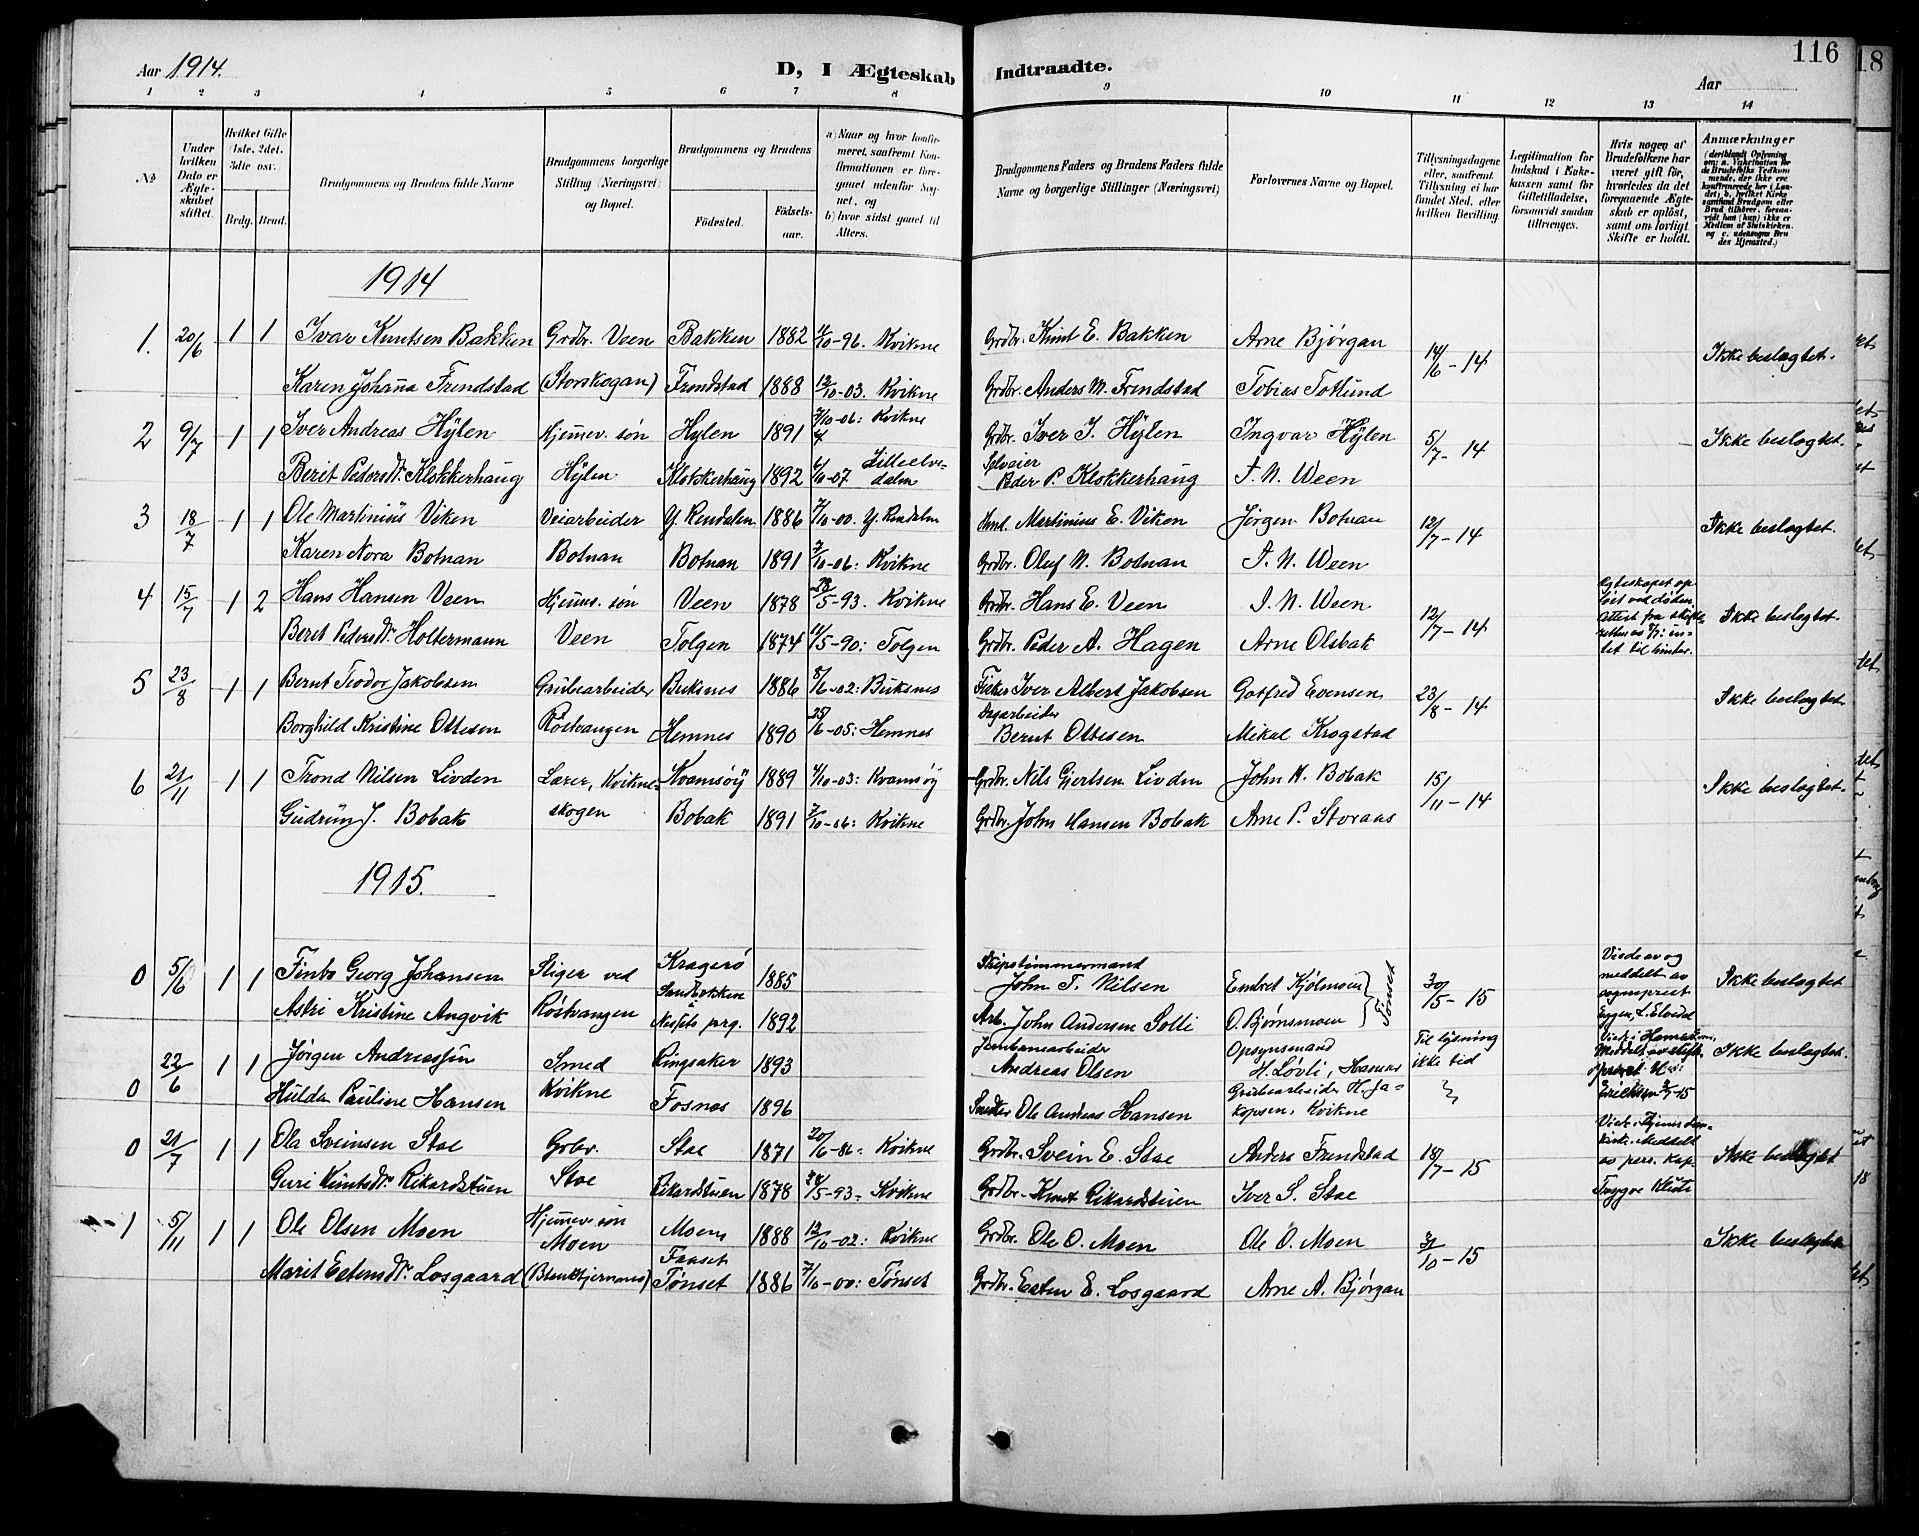 Aar 1914. D, I Ægteskab Indtraadte. Aar 116
1 2 3 4 5 6 7 8 9 10 11 12 13 14
№
Under hvilken Dato er Ægteskabet stiftet.
Hvilket Gifte (1ste, 2det, 3die osv.)
Brdg. Brud.
Brudgommens og Brudens fulde Navne
Brudgommens borgerlige Stilling (Næringsvei) og Bopæl.
Brudgommens og Brudens
Fødested. Fødselsaar.
a) Naar og hvor konfirmeret, saafremt Konfirmationen er foregaaet udenfor Sognet, og
b) hvor sidst gaaet til Alters.
Brudgommens Faders og Brudens Faders fulde Navne og borgerlige Stillinger (Næringsvei)
Forlovernes Navne og Bopæl.
Tillysningsdagene eller, saafremt Tillysning ei har fundet Sted, efter hvilken Bevilling.
Legitimation for Indskud i Enkekassen samt for Giftetilladelse, forsaavidt saadan tiltrænges.
Hvis nogen af Brudefolkene har været gift før, hvorledes da det foregaaende Ægteskab er opløst, samt om lovligt Skifte er holdt.
Anmærkninger (deriblandt Oplysning om: a. Vakcination for de Brudefolks Vedkommende, der ikke ere konfirmerede her i Landet; b. hvilket Kirkesamfund Brudgom eller Brud tilhører, forsaavidt han (hun) ikke er Medlem af Statskirken, og c. udensogns Brudes Hjemsted.)
1914
1. 20/6 1 1 Ivar Knutsen Bakken Grdbr. Veen Bakken 1882 4/10-96. Kvikne Grdbr. Knut E. Bakken Arne Bjørgan 14/6-14 Ikke beslægtet.
Karen Johanna Frendstad (Storskogan) Frendstad 1888 12/10-03. Kvikne Grdbr. Anders M. Frendstad Tobias Totlund
2 9/7 1 1 Iver Andreas Hylen Hjemmev. søn Hylen 1891 7/10-06: Kvikne Grdbr. Iver I. Hylen Ingvar Hylen 5/7-14 Ikke beslægtet.
Berit Pedersdtr. Klokkerhaug Hylen Klokkerhaug 1892 6/10-07 Lilleelvedalen Selveier Peder P. Klokkerhaug I. N. Ween
3 18/7 1 1 Ole Martinius Viken Veiarbeider Y. Rendalen 1886 7/10-00. Y. Rendalen Martinius E. Viken Jørgen Botnan 12/7-14 Ikke beslægtet.
Karen Nora Botnan Botnan Botnan 1891 7/10-06: Kvikne Grdbr. Oluf N. Botnan I. N. Ween
4 15/7 1 2 Hans Hansen Veen Hjemmev. søn Veen 1878 28/5-93. Kvikne Grdbr. Hans E. Veen I. N. Ween 12/7-14 Ægteskapet opløst ved døden Attest fra skifteretten av intet til hinder. Ikke beslægtet.
Berit Pedersdtr. Holtermann Veen Tolgen 1874 /5-90: Tolgen Grdbr. Peder A. Hagen Arne Olsbak
5 23/8 1 1 Bernt Teodor Jakobsen Grubearbeider Buksnes 1886 8/6-02: Buksnes Fisker Iver Albert Jakobsen Gotfred Evensen 23/8-14 Ikke beslægtet
Borghild Kristine Ottesen Røstvangen Hemnes 1890 25/6-05: Hemnes Dagarbeider Bernt Ottesen Mikal Krogstad
6 21/11 1 1 Trond Nilsen Livden Lærer, Kvikne- Kvamsøy 1889 4/10-03: Kvamsøy Grdbr. Nils Gjertsen Livden John H. Bobak 15/11-14 Ikke beslægtet.
Gudrun J. Bobak skogen Bobak 1891 7/10-06: Kvikne Grdbr. John Hansen Bobak Arne P. Storaas
1915.
0 5/6 1 1 Finbo Georg Johansen Stiger ved Kragerø 1885 Skipstømmermand John T. Nilsen Embret Kjølmoen } Tønset 30/5-15 Viede av og meddelt av sogneprest Eggen, L. Elvedal Ikke beslægtet
Astri Kristine Angvik Røstvangen Nessets prg. 1892 Arb. John Andersen Solli O. Bjørnsmoen
0 22/6 1 1 Jørgen Andreassen Smed Ringsaker 1893 Jernbanearbeider Andreas Olsen Opsynsmand H. Løvli, Hamar Til lysning ikke tid Ikke beslægtet.
Hulda Pauline Hansen Kvikne Fosnes 1896 Ole Andreas Hansen Grubearbeider H. Jakopsen, Kvikne
0 21/7 1 1 Ola Sveinsen Stae Grdbr. Stae 1871 20/6-86: Kvikne Grdbr. Svein E. Stae Anders Frendstad 18/7-15 Meddelt av pers. kap. Trygve Ikke beslægtet
Guri Knutsdtr. Rikardstuen Stae Rikardstuen 1878 28/5-93- Kvikne Grdbr. Knut Rikardstuen Iver S. Stae
1 5/11 1 1 Ole Olsen Moen Hjemmev. søn Moen Moen 1888 12/10-02: Kvikne Grdbr. Ole O. Moen Ole O. Moen 31/10-15 Ikke beslægtet
Marit Estensdtr. Losgaard (Blinktjernmo) Faaset Tønset 1886 7/10-00: Tønset Grdbr. Esten E. Losgaard Arne A. Bjørgan